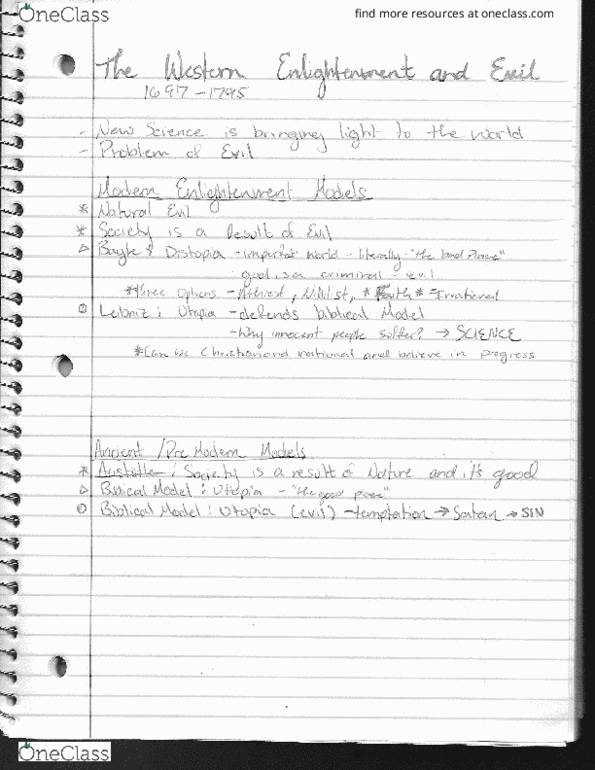 OneClass
find more resources at oneclass.com
The Western Enlightenment and Evil
1697-1795
- New Science is bringing light to the world
- Problem of Evil
Modern Enlightenment Models
* Natural Evil
* Society is a Result of Evil
Bayle & Distopia - imperfect world - literally "the bad place"
god is a criminal - evil
* three options - Atheist, Nihilist, * Faith * = Irrational
Leibniz: Utopia - defends biblical Model
- Why innocent people suffer? → SCIENCE
* Can be Christian and rational and believe in progress
Ancient / Pre Modern Models
* Aristotle: Society is a result of Nature and it's good
Biblical Model: Utopia - "the good place"
Biblical Model: Utopia (evil) - temptation → Satan → SIN
OneClass